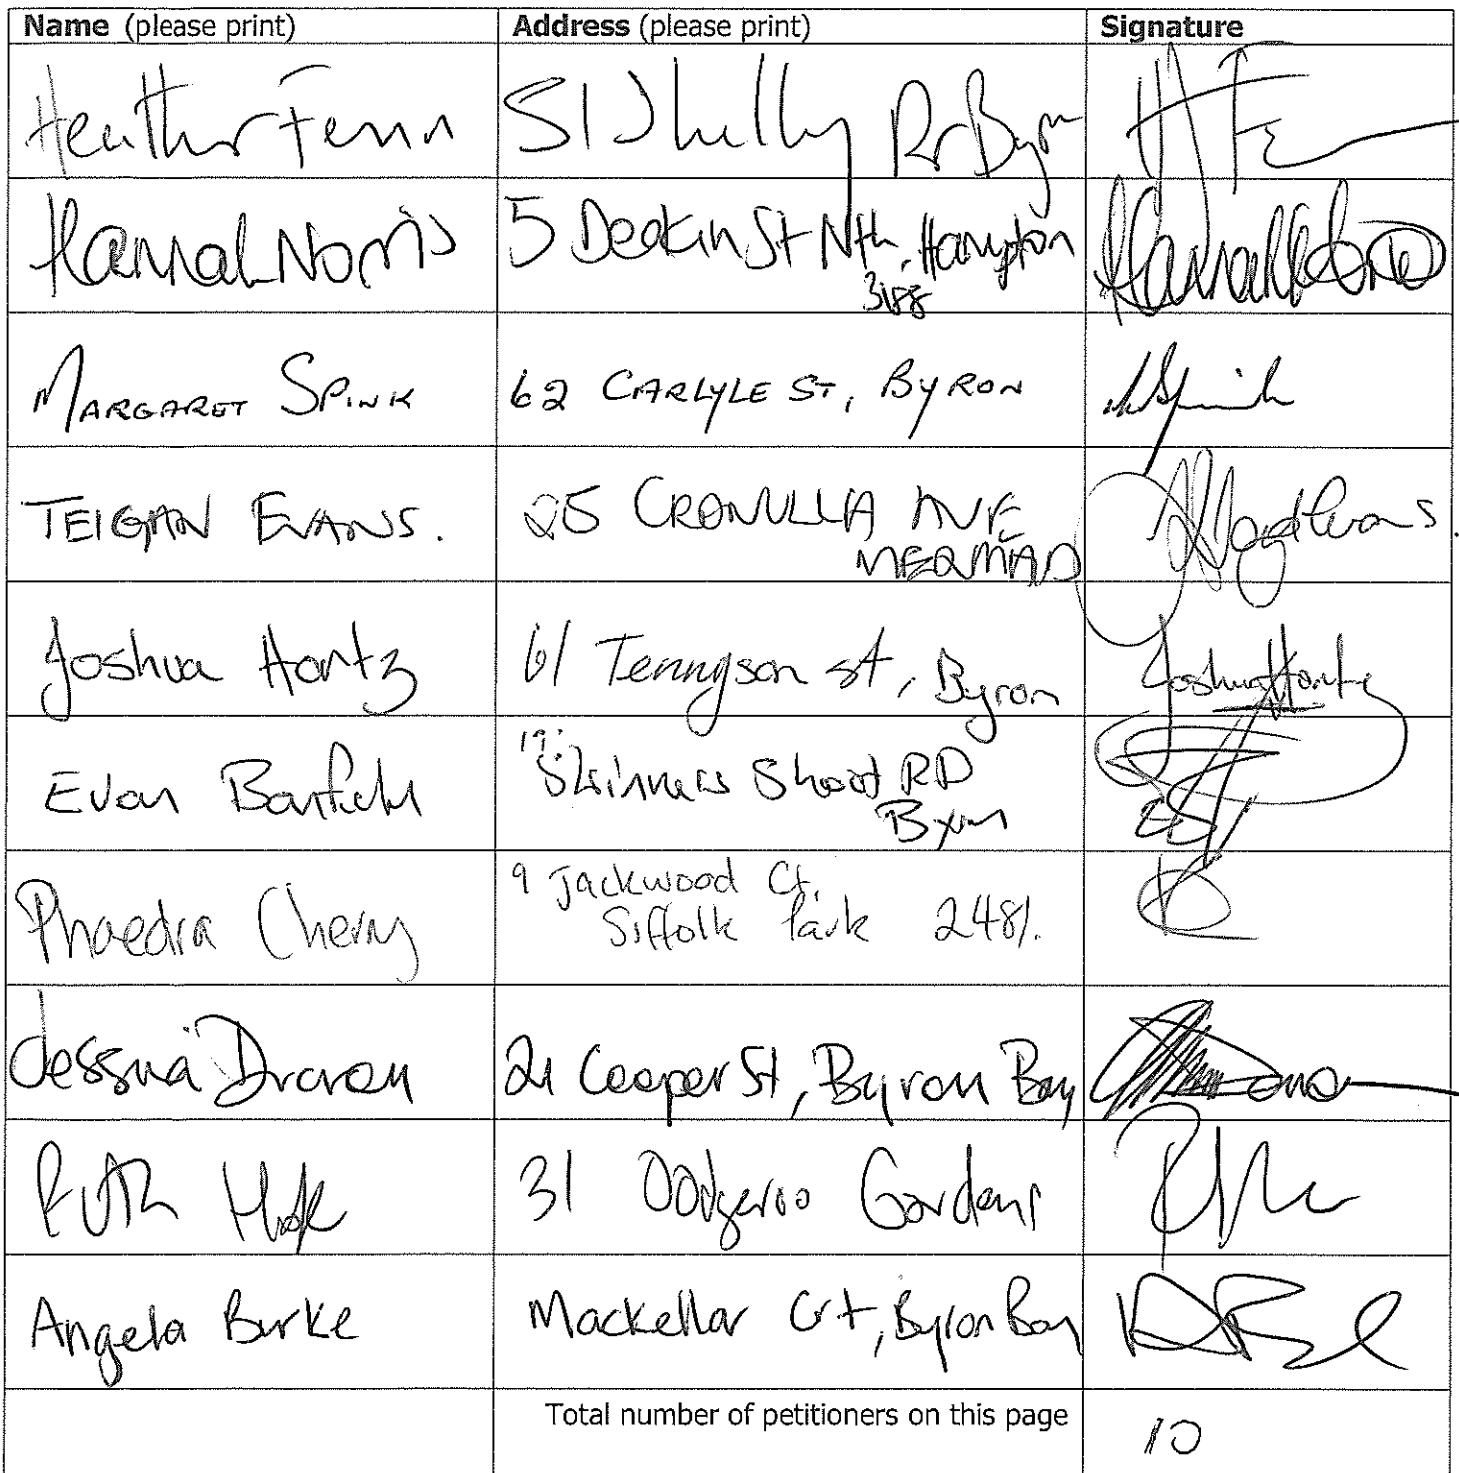 Name (please print) Address (please print) Signature
Heather Fenn 51 Shelly Dr Byron H Fe
Hannah Norris 5 Deakin St Nth, Hampton
3188
MARGARET SPINK 62 CARLYLE ST, BYRON MSpink
TEIGAN EVANS. 25 CRONULLA AVE
MERMAID
Joshua Hantz 61 Tennyson st, Byron Joshua Hantz
Evan 19
Skinners Shoot RD
Byron
Phaedra Cherry 9 Jackwood Ct,
Siffolk Park 2481.
Jessica 21 Cooper St, Byron Bay
Ruth 31 Oodgeroo Gardens
Angela Burke Mackellar Crt, Byron Bay
Total number of petitioners on this page 10